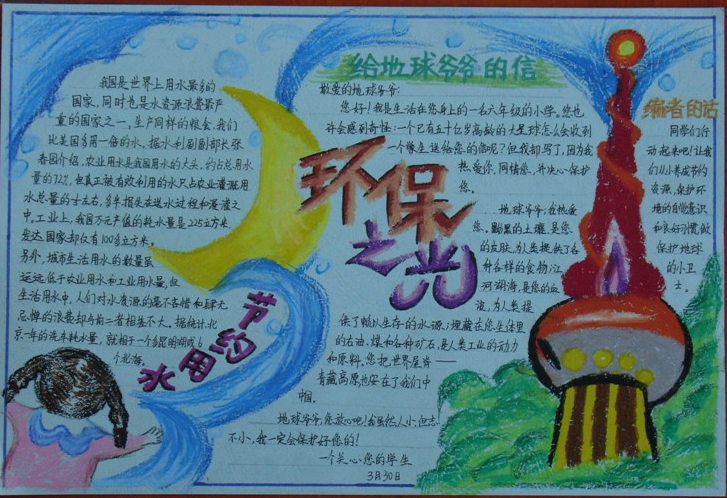 我国是世界上用水最多的
国家,同时也是水资源浪费最严
重的国家之一。生产同样的粮食,我们
比美国多用一倍的水。据水利副部长张
春园介绍,农业用水是我国用水的大头,约占总用水
量的72%,但真正被有效利用的水只占农业灌溉用
水总量的
损失在送水过程和漫灌之
中。工业上,我国万元产值的耗水量是225立方米,
发达国家却仅有100多立方米。
另外,城市生活用水的数量虽
远远低于农业用水和工业用水量,但
生活用水中,人们对水资源的毫不吝惜和肆无
忌惮的浪费却与前二者相差不大。据统计,北
京一年的洗车耗水量,就相当一个多昆明湖或6
个北海。
节约用水
环保之光
给地球爷爷的信
敬爱的地球爷爷:
您好!我是生活在您身上的一名六年级的小学。您也
许会感到奇怪:一个已有五十亿岁高龄的大星球怎么会收到
一个学生送给您的信呢?但我却写了,因为我
热爱你,同情您,并决心保护
您。
地球爷爷,我热爱
您。黝黑的土壤,是您
的皮肤,为人类提供了各
种各样的食物;江
河湖海,是您的血
液,为人类提
供了赖以生存的水源;埋藏在您身体里
的石油、煤和各种矿石,是人类工业的动力
和原料。您把世界屋脊——
青藏高原也安在了我们中
国。
地球爷爷,您放心吧!我虽然人小,但志
不小,我一定会保护好您的!
一个关心您的学生
3月30日
编者的话
同学们行
动起来吧!让我
们从小养成节约
资源,保护环
境的自觉意识
和良好习惯,做
保护地球
的小卫
士。